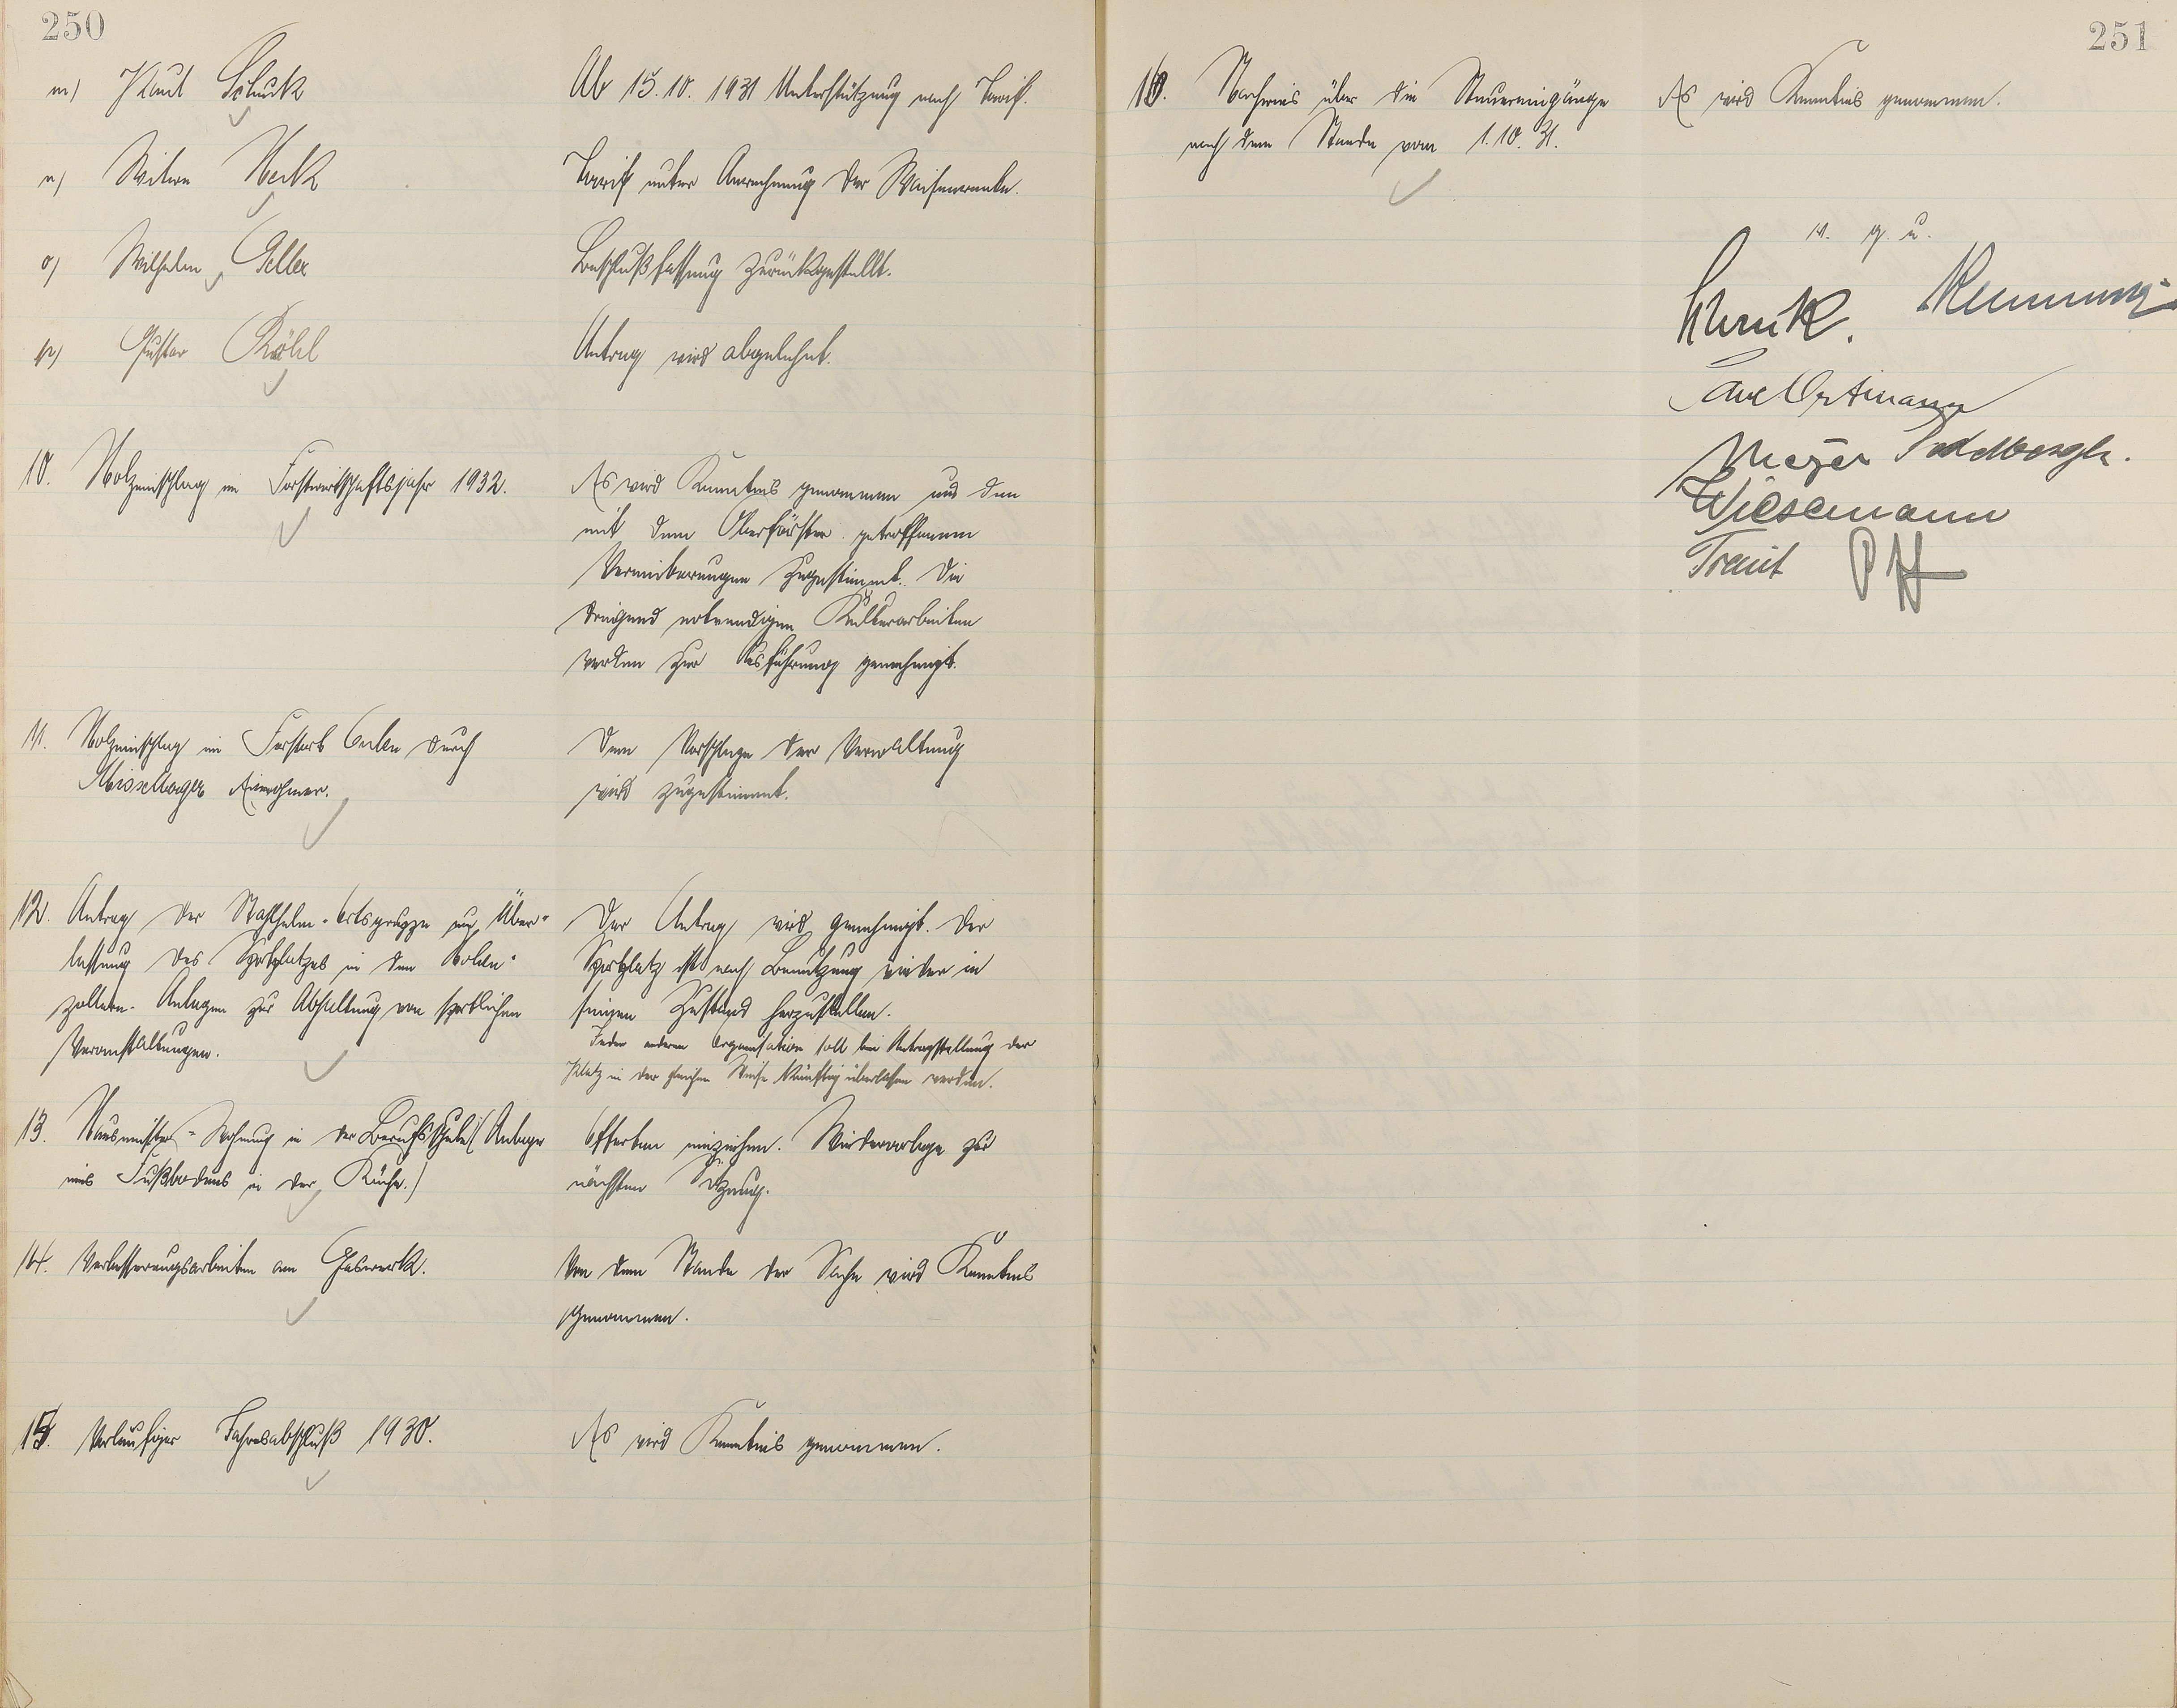 250
m) Paul Schuck
Ab 15.10.1931 Unterstützung nach Tarif.
n) Witwe Heck
Tarif unter Anrechnung der Waisenrente.
o) Wilhelm Geller
Beschlußfassung zurückgestellt.
p) Gustav Röhl
Antrag wird abgelehnt.
10. Holzeinschlag im Forstwirtschaftsjahr 1932.
Es wird Kenntnis genommen und den
mit dem Oberförster getroffenen
Vereinbarungen zugestimmt. Die
dringend notwendigen Kulturarbeiten
werden zur Ausführung genehmigt.
11. Holzeinschlag im Forstort durch
Einwohner.
Dem Vorschlage der Verwaltung
wird zugestimmt.
12. Antrag der Stahlhelm-Ortsgruppe um Über-
lassung des Sportplatzes in den Hohen-
zollern-Anlagen zur Abhaltung von sportlichen
Veranstaltungen.
Der Antrag wird genehmigt. Der
Sportplatz ist nach Benutzung wieder in
seinen Zustand herzustellen.
Jeder anderen Organisation soll bei Antragstellung der
Platz in der gleichen Weise künftig überlassen werden.
13. Hausmeister-Wohnung in der Berufsschule (Anlage
eines Fußbodens in der Küche.)
Offerten einziehen. Wiedervorlage zur
nächsten Sitzung.
14. Verbesserungsarbeiten am Gaswerk.
Von dem Stande der Sache wird Kenntnis
genommen.
15. Vorläufiger Jahresabschluß 1930.
Es wird Kenntnis genommen.
251
16. Nachweis über die Steuereingänge
nach dem Stande vom 1.10.31.
Es wird Kenntnis genommen.
v. g. u.
Ortmann
Meyer
Wiesemann
Traut